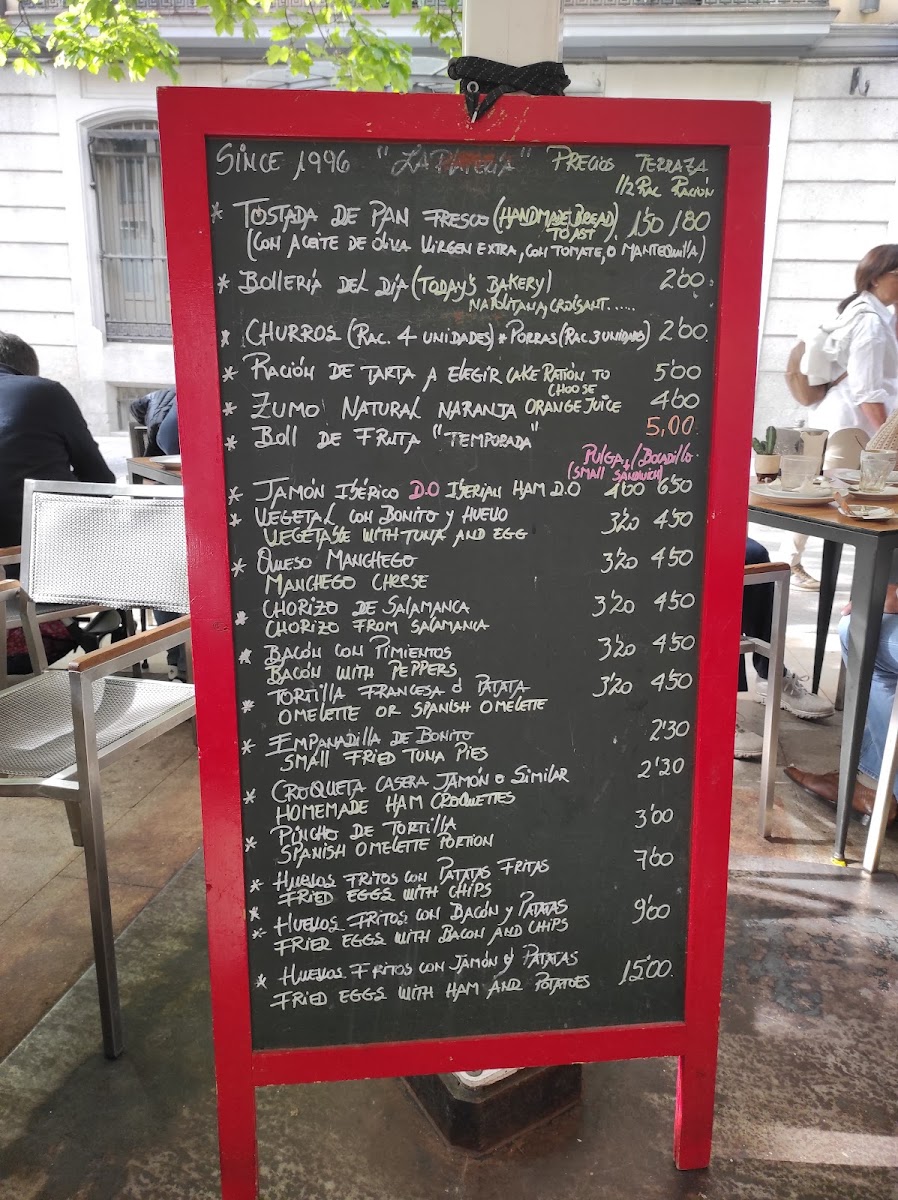 SINCE 1996 "LA PLATERIA" PRECIOS TERRAZA
1/2 RAC RACIÓN
* TOSTADA DE PAN FRESCO (HANDMADE BREAD) 1'50 / 1'80
TOAST
(CON ACEITE DE OLIVA VIRGEN EXTRA, CON TOMATE, O MANTEQUILLA)
* BOLLERIA DEL DÍA (TODAY'S BAKERY) 2'00
NAPOLITANA, CROISANT.....
* CHURROS (RAC. 4 UNIDADES) * PORRAS (RAC. 3 UNIDADES) 2'00
* RACIÓN DE TARTA A ELEGIR CAKE RATION TO 5'00
CHOOSE
* ZUMO NATURAL NARANJA ORANGE JUICE 4'00
* BOLL DE FRUTA "TEMPORADA" 5,00
PULGA / BOCADILLO
(SMALL SANDWICH)
* JAMÓN IBÉRICO D.O IBERIAN HAM D.O 4'00 6'50
* VEGETAL CON BONITO Y HUEVO 3'20 4'50
VEGETABLE WITH TUNA AND EGG
* QUESO MANCHEGO 3'20 4'50
MANCHEGO CHEESE
* CHORIZO DE SALAMANCA 3'20 4'50
CHORIZO FROM SALAMANCA
* BACÓN CON PIMIENTOS 3'20 4'50
BACÓN WITH PEPPERS
* TORTILLA FRANCESA Ó PATATA 3'20 4'50
OMELETTE OR SPANISH OMELETTE
* EMPANADILLA DE BONITO 2'30
SMALL FRIED TUNA PIES
* CROQUETA CASERA JAMÓN O SIMILAR 2'30
HOMEMADE HAM CROQUETTES
* PINCHO DE TORTILLA 3'00
SPANISH OMELETTE PORTION
* HUEVOS FRITOS CON PATATAS FRITAS 7'00
FRIED EGGS WITH CHIPS
* HUEVOS FRITOS CON BACÓN Y PATATAS 9'00
FRIED EGGS WITH BACON AND CHIPS
* HUEVOS FRITOS CON JAMÓN Y PATATAS 15'00
FRIED EGGS WITH HAM AND POTATOES